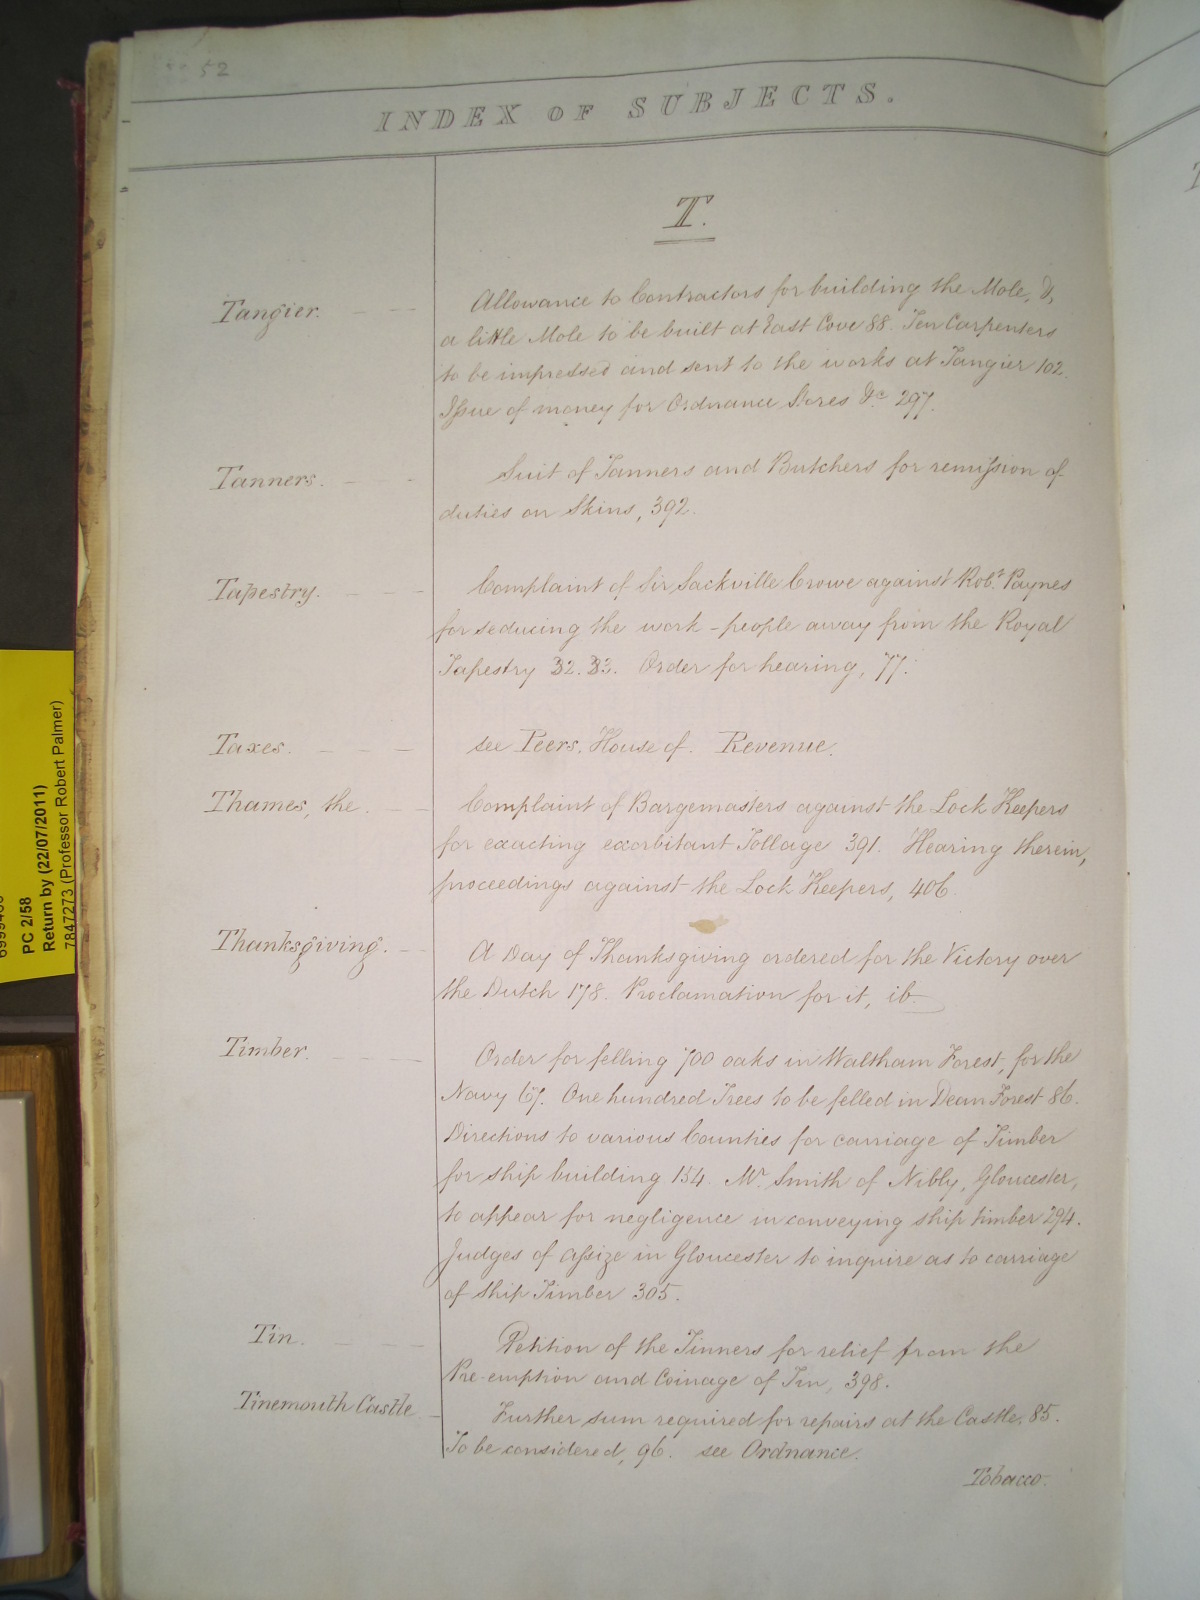 52
INDEX OF SUBJECTS.
T.
Tangier. Allowance to Contractors for building the Mole, &,
a little Mole to be built at East Cove 88. Ten Carpenters
to be impressed and sent to the works at Tangier 102.
Issue of money for Ordnance Stores &c. 297.
Tanners. Suit of Tanners and Butchers for remission of
duties on Skins, 392.
Tapestry. Complaint of Sir Sackville Crowe against Robt. Paynes
for seducing the work-people away from the Royal
Tapestry 32. 33. Order for hearing, 77.
Taxes. see Peers, House of. Revenue.
Thames, the. Complaint of Bargemasters against the Lock Keepers
for exacting exorbitant Tollage 391. Hearing therein,
proceedings against the Lock Keepers, 406.
Thanksgiving. A Day of Thanksgiving ordered for the Victory over
the Dutch 178. Proclamation for it, ib.
Timber. Order for felling 700 oaks in Waltham Forest, for the
Navy 67. One hundred Trees to be felled in Dean Forest 86.
Directions to various Counties for carriage of Timber
for ship building 154. Mr. Smith of Nibly, Gloucester,
to appear for negligence in conveying ship timber 294.
Judges of Assize in Gloucester to inquire as to carriage
of Ship Timber 305.
Tin. Petition of the Tinners for relief from the
Pre-emption and Coinage of Tin, 398.
Tinemouth Castle Further sum required for repairs at the Castle, 85.
To be considered, 96. see Ordnance.
Tobacco.
PC 2/58
Return by (22/07/2011)
7847273 (Professor Robert Palmer)